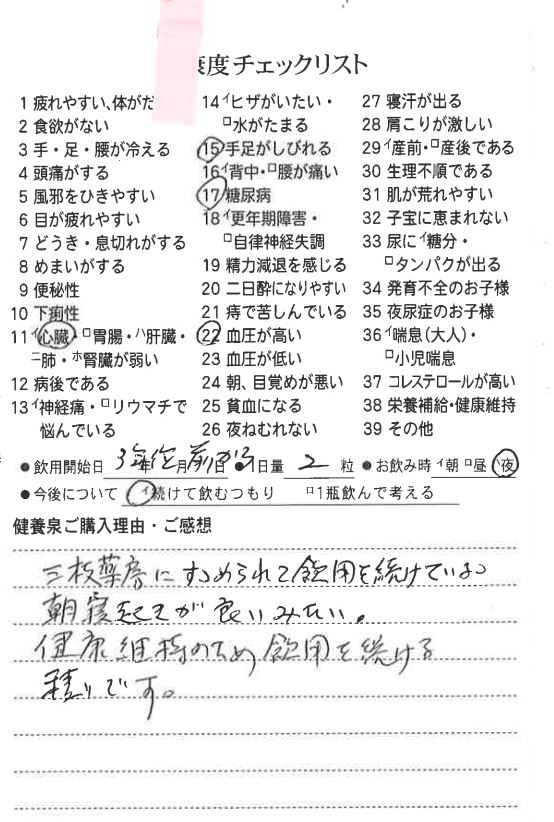 度チェックリスト
1 疲れやすい、体がだ
2 食欲がない
3 手・足・腰が冷える
4 頭痛がする
5 風邪をひきやすい
6 目が疲れやすい
7 どうき・息切れがする
8 めまいがする
9 便秘性
10 下痢性
11 イ心臓・ロ胃腸・ハ肝臓・
ニ肺・ホ腎臓が弱い
12 病後である
13 イ神経痛・ロリウマチで
悩んでいる
14 イヒザがいたい・
ロ水がたまる
15 手足がしびれる
16 イ背中・ロ腰が痛い
17 糖尿病
18 イ更年期障害・
ロ自律神経失調
19 精力減退を感じる
20 二日酔になりやすい
21 痔で苦しんでいる
22 血圧が高い
23 血圧が低い
24 朝、目覚めが悪い
25 貧血になる
26 夜ねむれない
27 寝汗が出る
28 肩こりが激しい
29 イ産前・ロ産後である
30 生理不順である
31 肌が荒れやすい
32 子宝に恵まれない
33 尿にイ糖分・
ロタンパクが出る
34 発育不全のお子様
35 夜尿症のお子様
36 イ喘息(大人)・
ロ小児喘息
37 コレステロールが高い
38 栄養補給・健康維持
39 その他
●飲用開始日 3年位月前から日 ●1日量 2 粒 ●お飲み時 イ朝 ロ昼 ハ夜
●今後について イ続けて飲むつもり ロ1瓶飲んで考える
健養泉ご購入理由・ご感想
三枝薬房にすゝめられて飲用を続けている
朝寝起きが良いみたい。
健康維持のため飲用を続ける
積りです。